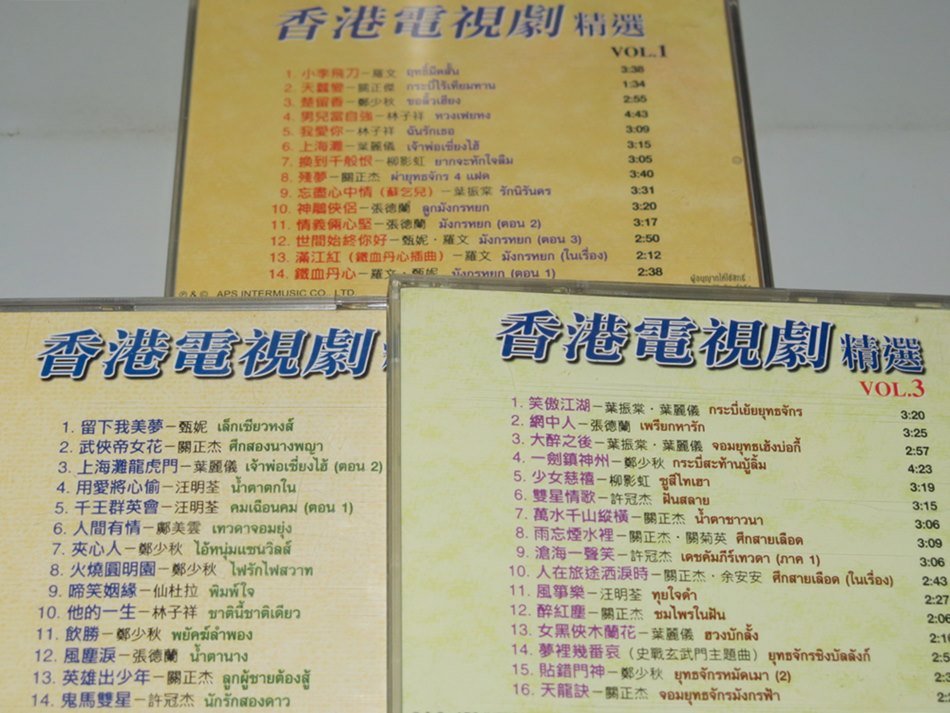 香港電視劇 精選
VOL.1
1. 小李飛刀－羅文 ฤทธิ์มีดสั้น 3:38
2. 天蠶變－關正傑 กระบี่ไร้เทียมทาน 1:34
3. 楚留香－鄭少秋 ชอลิ้วเฮียง 2:55
4. 男兒當自強－林子祥 หวงเฟยหง 4:43
5. 我愛你－林子祥 ฉันรักเธอ 3:09
6. 上海灘－葉麗儀 เจ้าพ่อเซี่ยงไฮ้ 3:15
7. 換到千般恨－柳影虹 ยากจะหักใจลืม 3:05
8. 殘夢－關正杰 ผ่ายุทธจักร 4 แฝด 3:40
9. 忘盡心中情（蘇乞兒）－葉振棠 รักนิรันดร 3:31
10. 神鵰俠侶－張德蘭 ลูกมังกรหยก 3:20
11. 情義倆心堅－張德蘭 มังกรหยก (ตอน 2) 3:17
12. 世間始終你好－甄妮．羅文 มังกรหยก (ตอน 3) 2:50
13. 滿江紅（鐵血丹心插曲）－羅文 มังกรหยก (ในเรื่อง) 2:12
14. 鐵血丹心－羅文．甄妮 มังกรหยก (ตอน 1) 2:38
℗ & © APS INTERMUSIC CO., LTD.
ผู้อนุญาตให้ใช้สิทธิ์ :
香港電視劇
1. 留下我美夢－甄妮 เล็กเซียวหงส์
2. 武俠帝女花－關正杰 ศึกสองนางพญา
3. 上海灘龍虎門－葉麗儀 เจ้าพ่อเซี่ยงไฮ้ (ตอน 2)
4. 用愛將心偷－汪明荃 น้ำตาตกใน
5. 千王群英會－汪明荃 คมเฉือนคม (ตอน 1)
6. 人間有情－鄺美雲 เทวดาจอมยุ่ง
7. 夾心人－鄭少秋 ไอ้หนุ่มแซนวิลส์
8. 火燒圓明園－鄭少秋 ไฟรักไฟสวาท
9. 啼笑姻緣－仙杜拉 พิมพ์ใจ
10. 他的一生－林子祥 ชาตินี้ชาติเดียว
11. 飲勝－鄭少秋 พยัคฆ์ลำพอง
12. 風塵淚－張德蘭 น้ำตานาง
13. 英雄出少年－關正杰 ลูกผู้ชายต้องสู้
14. 鬼馬雙星－許冠杰 นักรักสองดาว
香港電視劇 精選
VOL.3
1. 笑傲江湖－葉振棠．葉麗儀 กระบี่เย้ยยุทธจักร 3:20
2. 網中人－張德蘭 เพรียกหารัก 3:25
3. 大醉之後－葉振棠．葉麗儀 จอมยุทธเฮ้งบ่อกี้ 2:57
4. 一劍鎮神州－鄭少秋 กระบี่สะท้านบู๊ลิ้ม 4:23
5. 少女慈禧－柳影虹 ซูสีไทเฮา 3:19
6. 雙星情歌－許冠杰 ฝันสลาย 3:15
7. 萬水千山縱橫－關正杰 น้ำตาชาวนา 3:06
8. 雨忘煙水裡－關正杰．關菊英 ศึกสายเลือด 3:09
9. 滄海一聲笑－許冠杰 เดชคัมภีร์เทวดา (ภาค 1) 3:06
10. 人在旅途洒淚時－關正杰．余安安 ศึกสายเลือด (ในเรื่อง) 2:43
11. 風箏樂－汪明荃 ทุยใจดำ 2:27
12. 醉紅塵－關正杰 ชมไพรในฝัน 2:06
13. 女黑俠木蘭花－葉麗儀 ฮวงบักลั้ง
14. 夢裡幾番哀（史戰玄武門主題曲） ยุทธจักรชิงบัลลังก์
15. 貼錯門神－鄭少秋 ยุทธจักรหมัดเมา (2)
16. 天龍訣－關正杰 จอมยุทธจักรมังกรฟ้า